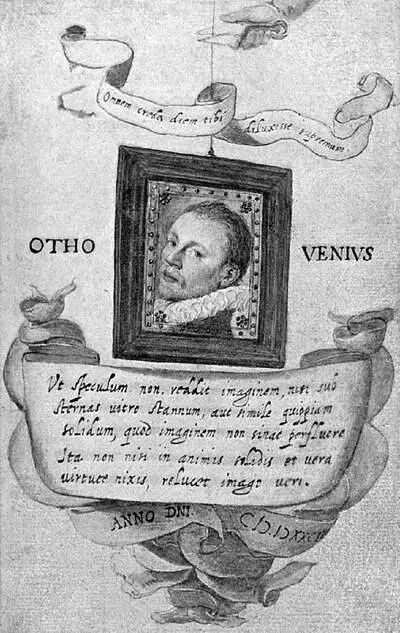 Omnem crede diem tibi diluxisse supremum.
OTHO VENIVS
Vt speculum non. reddit imaginem, nisi sub
sternas vitro stannum, aut simile quippiam
solidum, quod imaginem non sinat perfluere
Ita non nisi in animis solidis et vera
virtute nixis, relucet imago veri.
ANNO DNI.